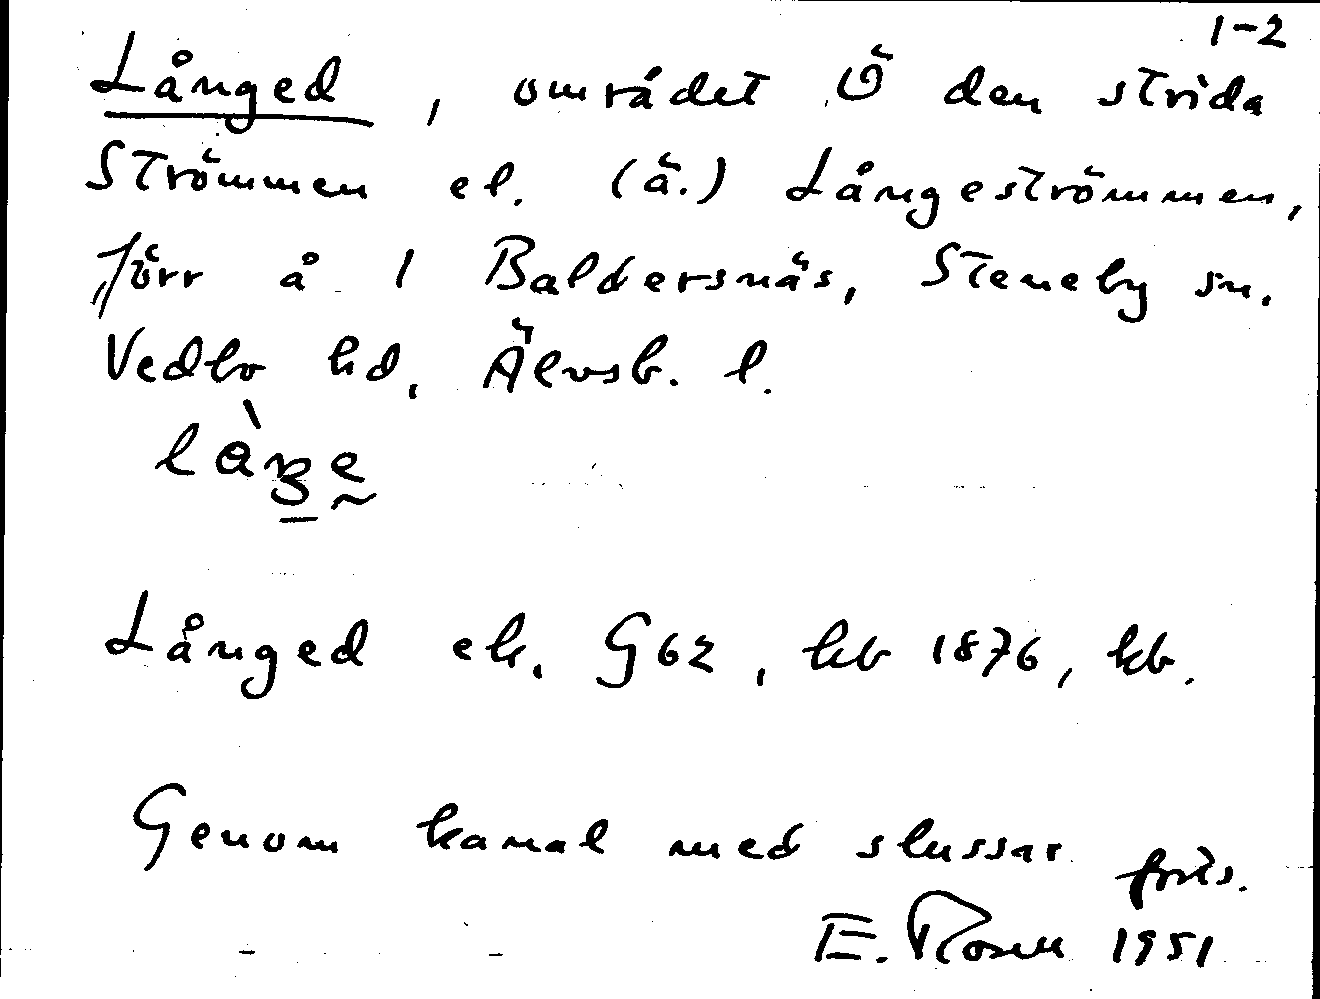 1-2
Långed, området Ö den strida
Strömmen el. (ä.) Långeströmmen,
förr å I Baldersnäs, Steneby sn.
Vedbo hd, Älvsb. l.
Långed ek. G62, hb 1876, kb.
Genom kanal med slussar forts.
E. Rosell 1951